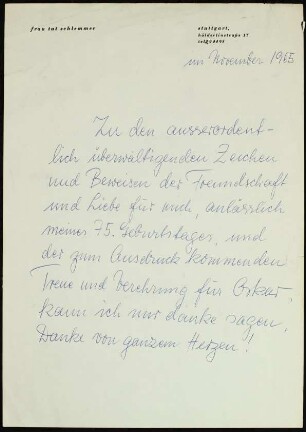 frau tut schlemmer
stuttgart,
hölderlinstraße 17
im November 1965
Zu den ausserordent-
lich überwältigenden Zeichen
und Beweisen der Freundschaft
und Liebe für mich, anlässlich
meines 75. Geburtstages, und
der zum Ausdruck kommenden
Treue und Verehrung für Oskar,
kann ich nur danke sagen,
Danke von ganzem Herzen!